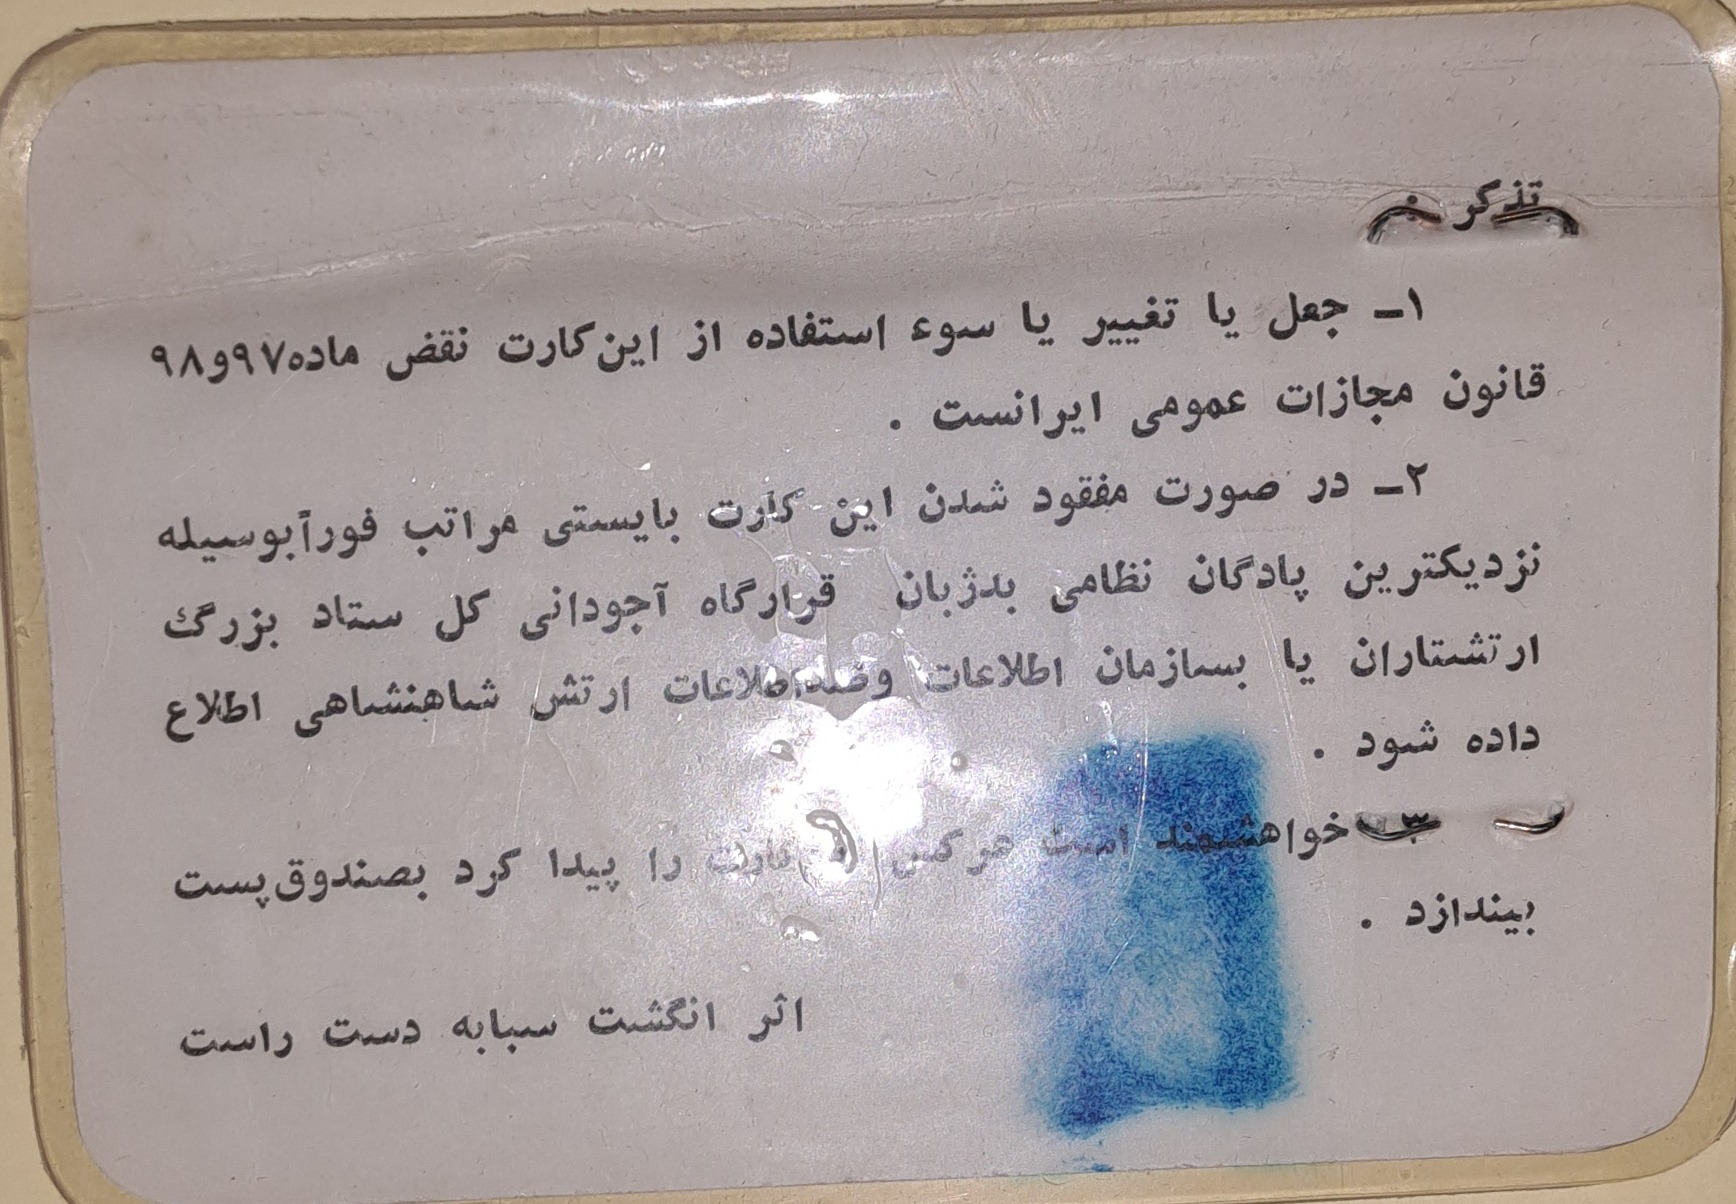 تذکر :
۱ـ جعل یا تغییر یا سوء استفاده از این کارت نقض ماده۹۷و۹۸
قانون مجازات عمومی ایرانست .
۲ـ در صورت مفقود شدن این کارت بایستی مراتب فوراًبوسیله
نزدیکترین پادگان نظامی بدژبان قرارگاه آجودانی کل ستاد بزرگ
ارتشتاران یا بسازمان اطلاعات وضداطلاعات ارتش شاهنشاهی اطلاع
داده شود .
۳ـ خواهشمند است هرکس این کارت را پیدا کرد بصندوق پست
بیندازد .
اثر انگشت سبابه دست راست